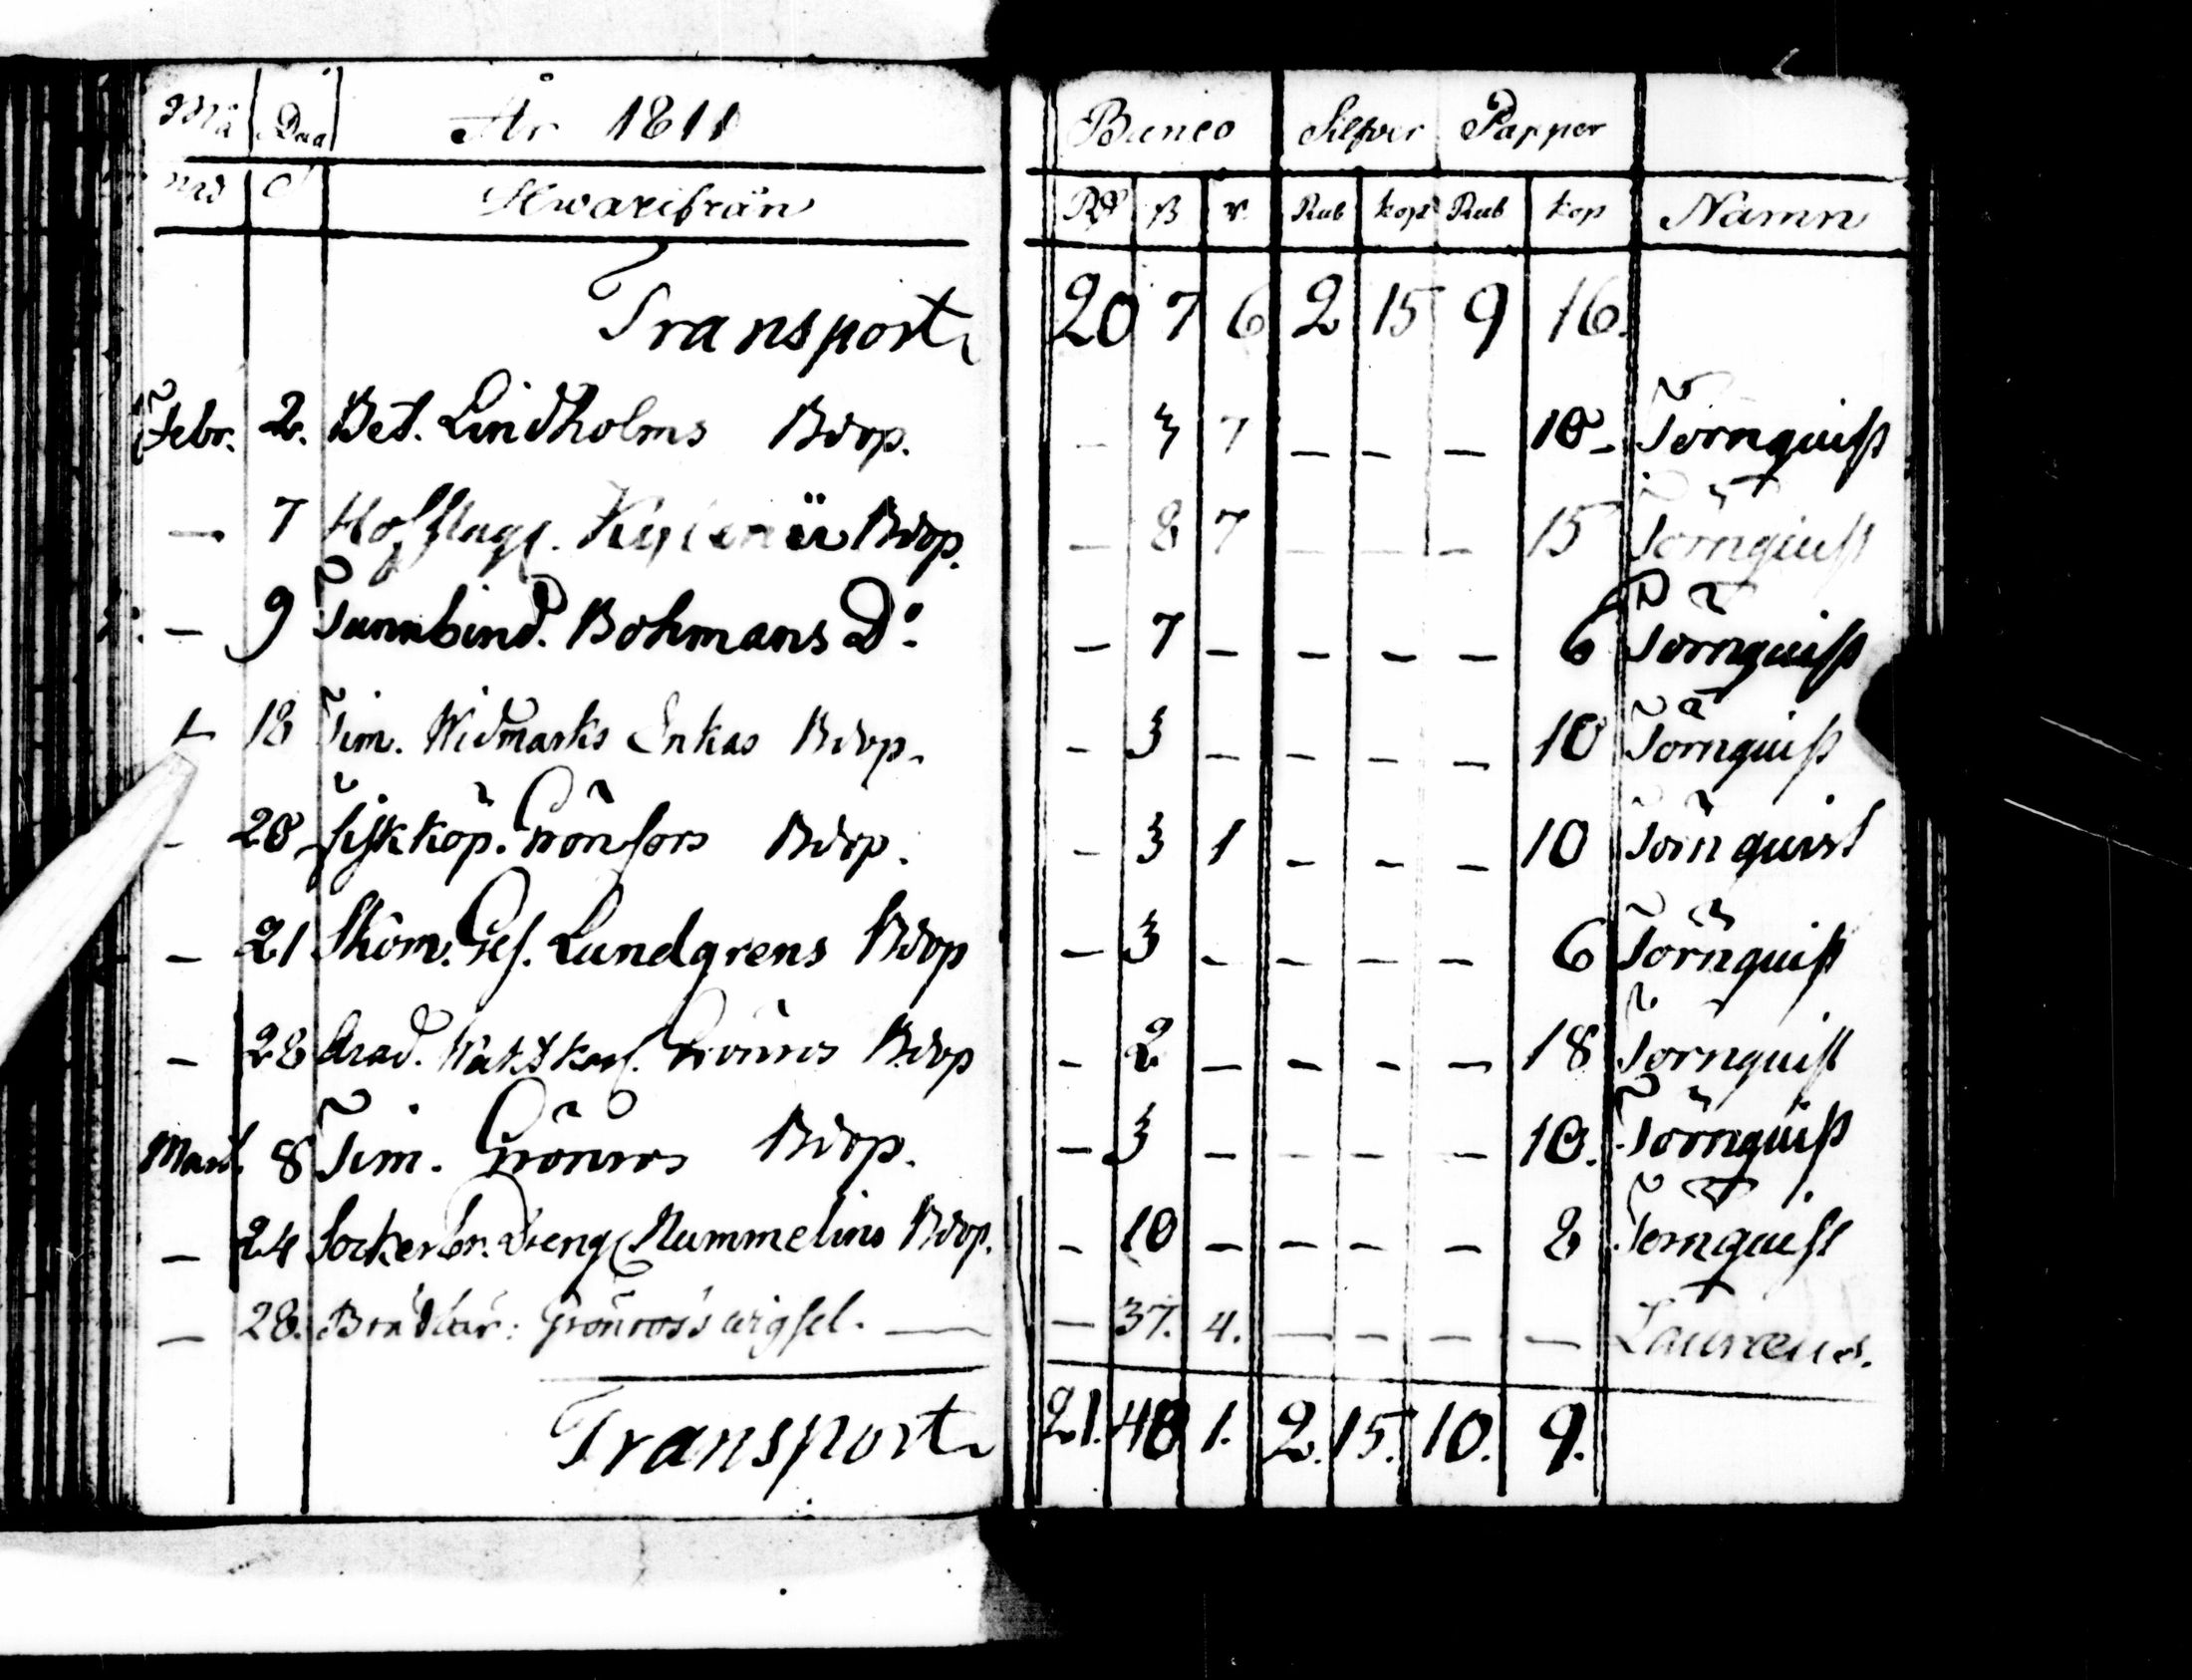 Må Dag År 1811 Banco Silfver Papper
nad Hwarifrån Rd ß r. Rub kop Rub kop Namn
Transport 20 7 6 2 15 9 16.
Febr. 2. Bet. Lindholms Bdop. - 3 7 - - - 10- Törnquist
- 7 Bdop. - 8 7 - - - 15 Törnquist
- 9 Tunnbind. Bohmans Do. - 7 - - - - 6 Törnquist
18 Tim. Widmarks Enkas Bdop. - 3 - - - - 10 Törnquist
- 20 Fiskköp. Grönfors Bdop. - 3 1 - - - 10 Törnquist
- 21 Skom. Ges. Lundgrens Bdop - 3 - - - - 6 Törnquist
- 28 Grönros Bdop - 2 - - - - 18 Törnquist
Mart. 8 Tim. Grönros Bdop. - 3 - - - - 10. Törnquist
- 24 Sockerbr. Dreng Nummelins Bdop. - 10 - - - - 8 Törnquist
- 28. Grönroos's wigsel. - 37. 4. - - - - Laurenius.
Transport 21. 40 1. 2. 15. 10. 9.